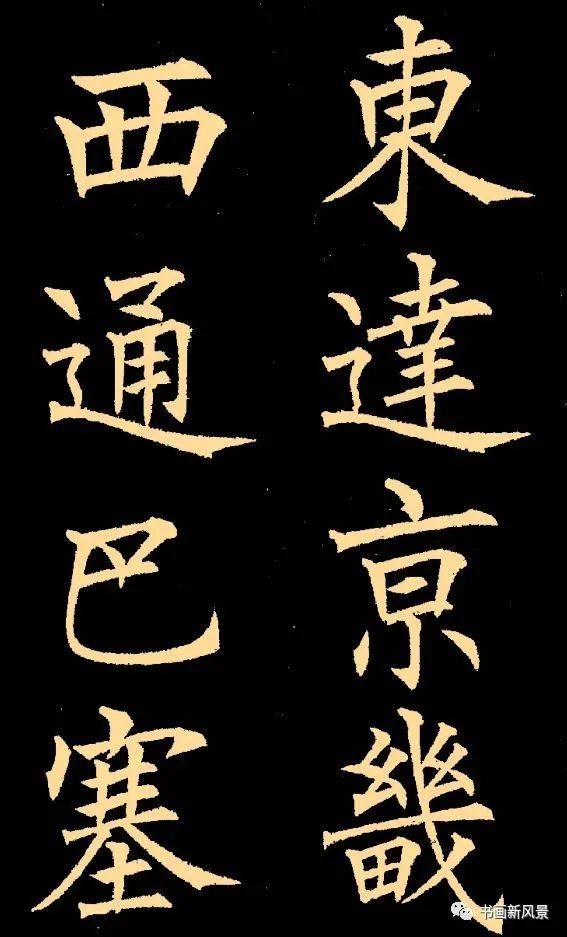 東達京畿
西通巴塞
书画新风景